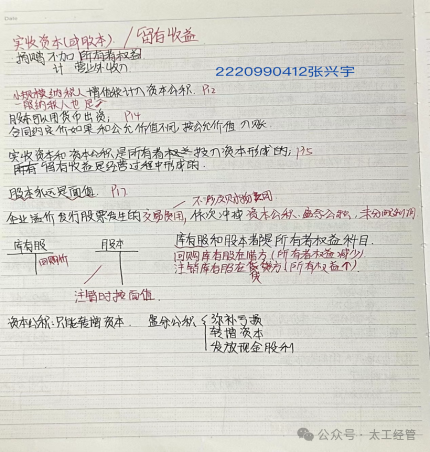 Date
实收资本(或股本) / 留有收益
捐赠 不加 所有者权益
计 营业外收入
2220990412张兴宇
小规模纳税人增值税计入资本公积. P12
一般纳税人也是
股本可以用货币出资; P14
合同约定价如果和公允价值不同,按公允价值入账
实收资本和资本公积是所有者投入资本形成的; P15
留有收益是经营过程中形成的.
股本永远是面值. P17
企业溢价发行股票发生的交易费用,依次冲 资本公积、盈余公积、未分配利润
库存股 股本 库存股和股本都是所有者权益科目.
回购时 回购库存股在借方(所有者权益减少)
注销库存股在贷方(所有者权益不)
贷
注销时按面值.
资本公积:只能转增资本. 盈余公积 弥补亏损
转增资本
发放现金股利
公众号·太工经管